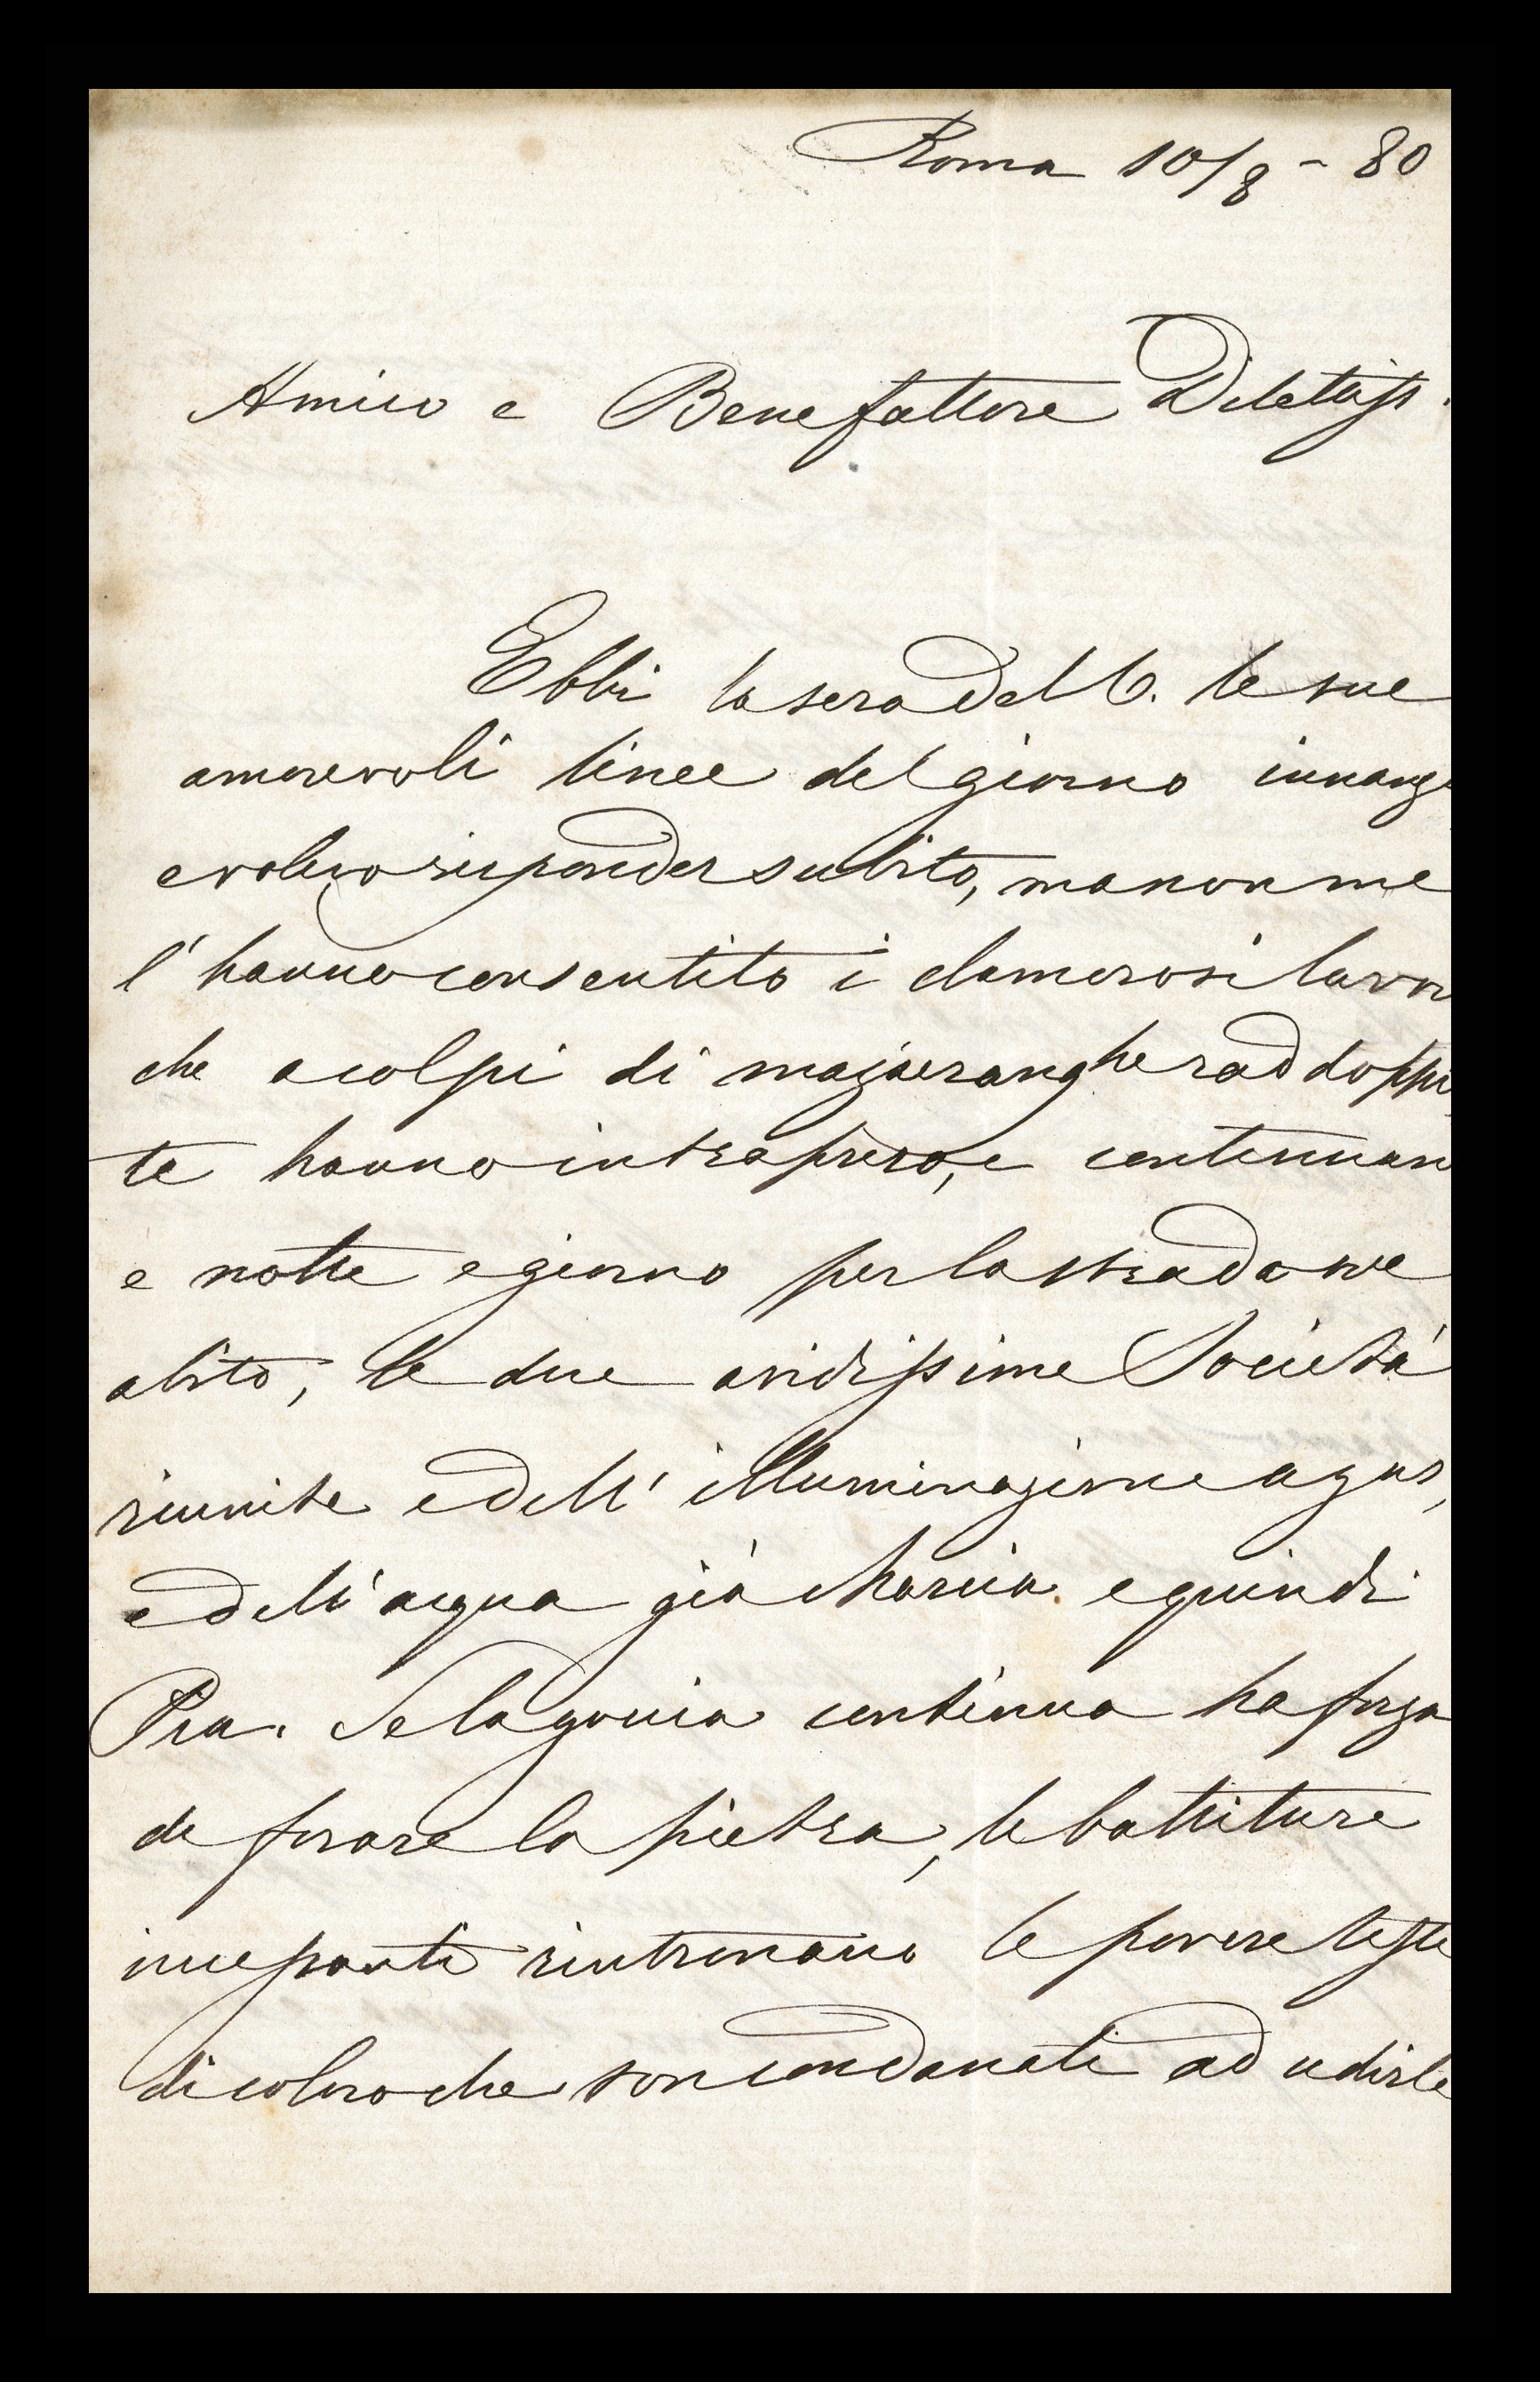 Roma 10/8 - 80
Amico e Benefattore Dilettiss.
Ebbi la sera del 6. le sue
amorevoli linee del giorno innanzi
e volevo risponder subito, ma non me
l'hanno consentito i clamorosi lavor
che a colpi di mazzeranghe raddoppia
te hanno intrapreso, e continuan
e notte e giorno per la strada ove
abito, le due avidissime Società
riunite e dell'illuminazione a gas,
e dell'acqua già Marcia. e quindi
Pia. Se la gouia continua ha forza
de forare la pietra, le battiture
incessanti rintronano le povere teste
di coloro che son condanati ad udirle